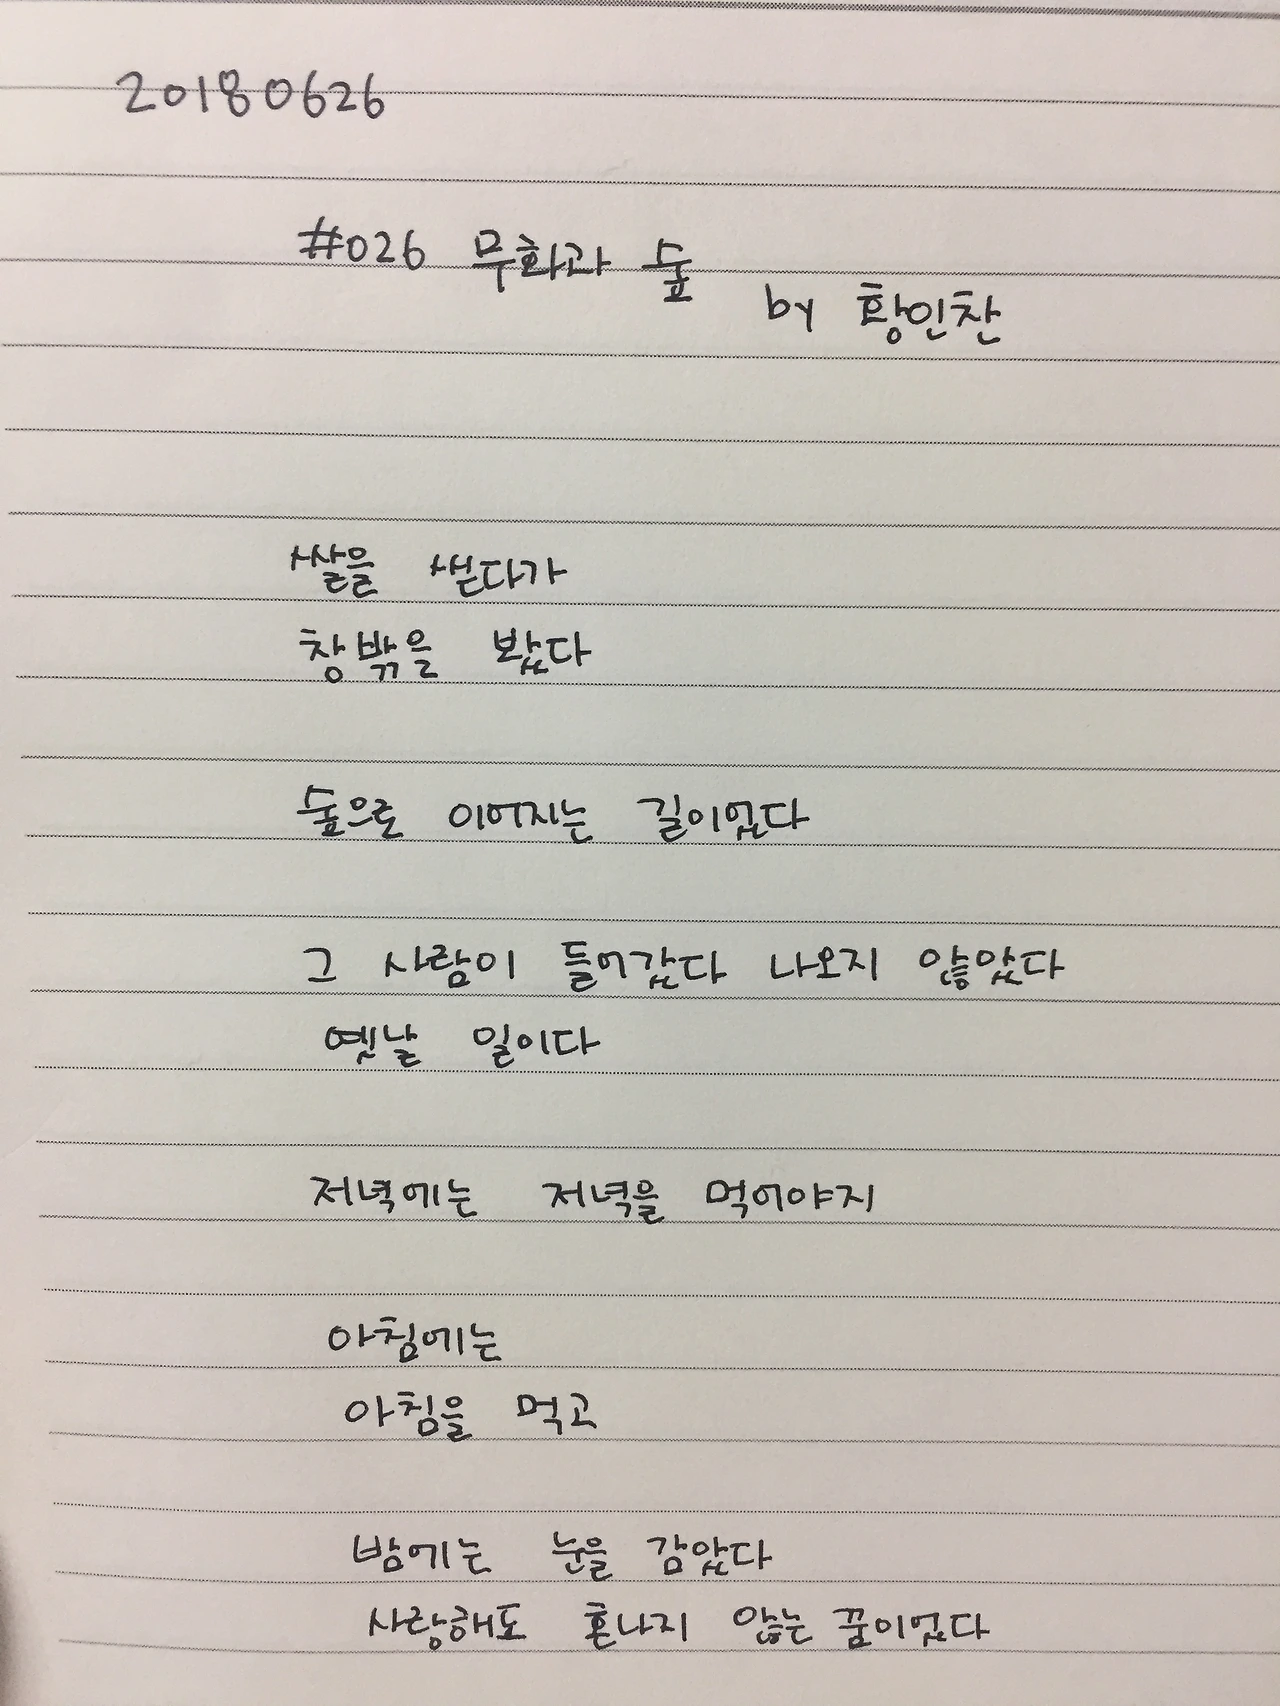 20180626
#026 무화과 숲
by 황인찬
쌀을 씻다가
창밖을 봤다
숲으로 이어지는 길이었다
그 사람이 들어갔다 나오지 않았다
옛날 일이다
저녁에는 저녁을 먹어야지
아침에는
아침을 먹고
밤에는 눈을 감았다
사랑해도 혼나지 않는 꿈이었다